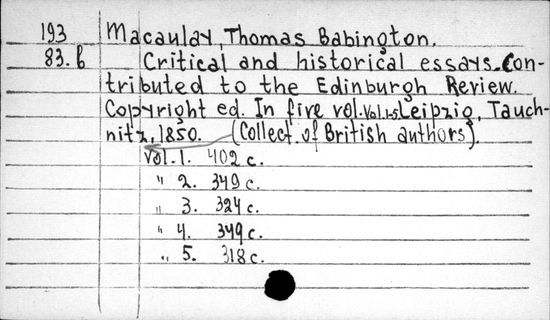 193 Macaulay, Thomas Babington.
83.b Critical and historical essays. Con-
tributed to the Edinburgh Review.
Copyright ed. In five vol. Vol.1-5 Leipzig, Tauch-
nitz, 1850. (Collect. of British authors).
Vol. 1. 402 c.
" 2. 349 c.
" 3. 324 c.
" 4. 349 c.
" 5. 318 c.